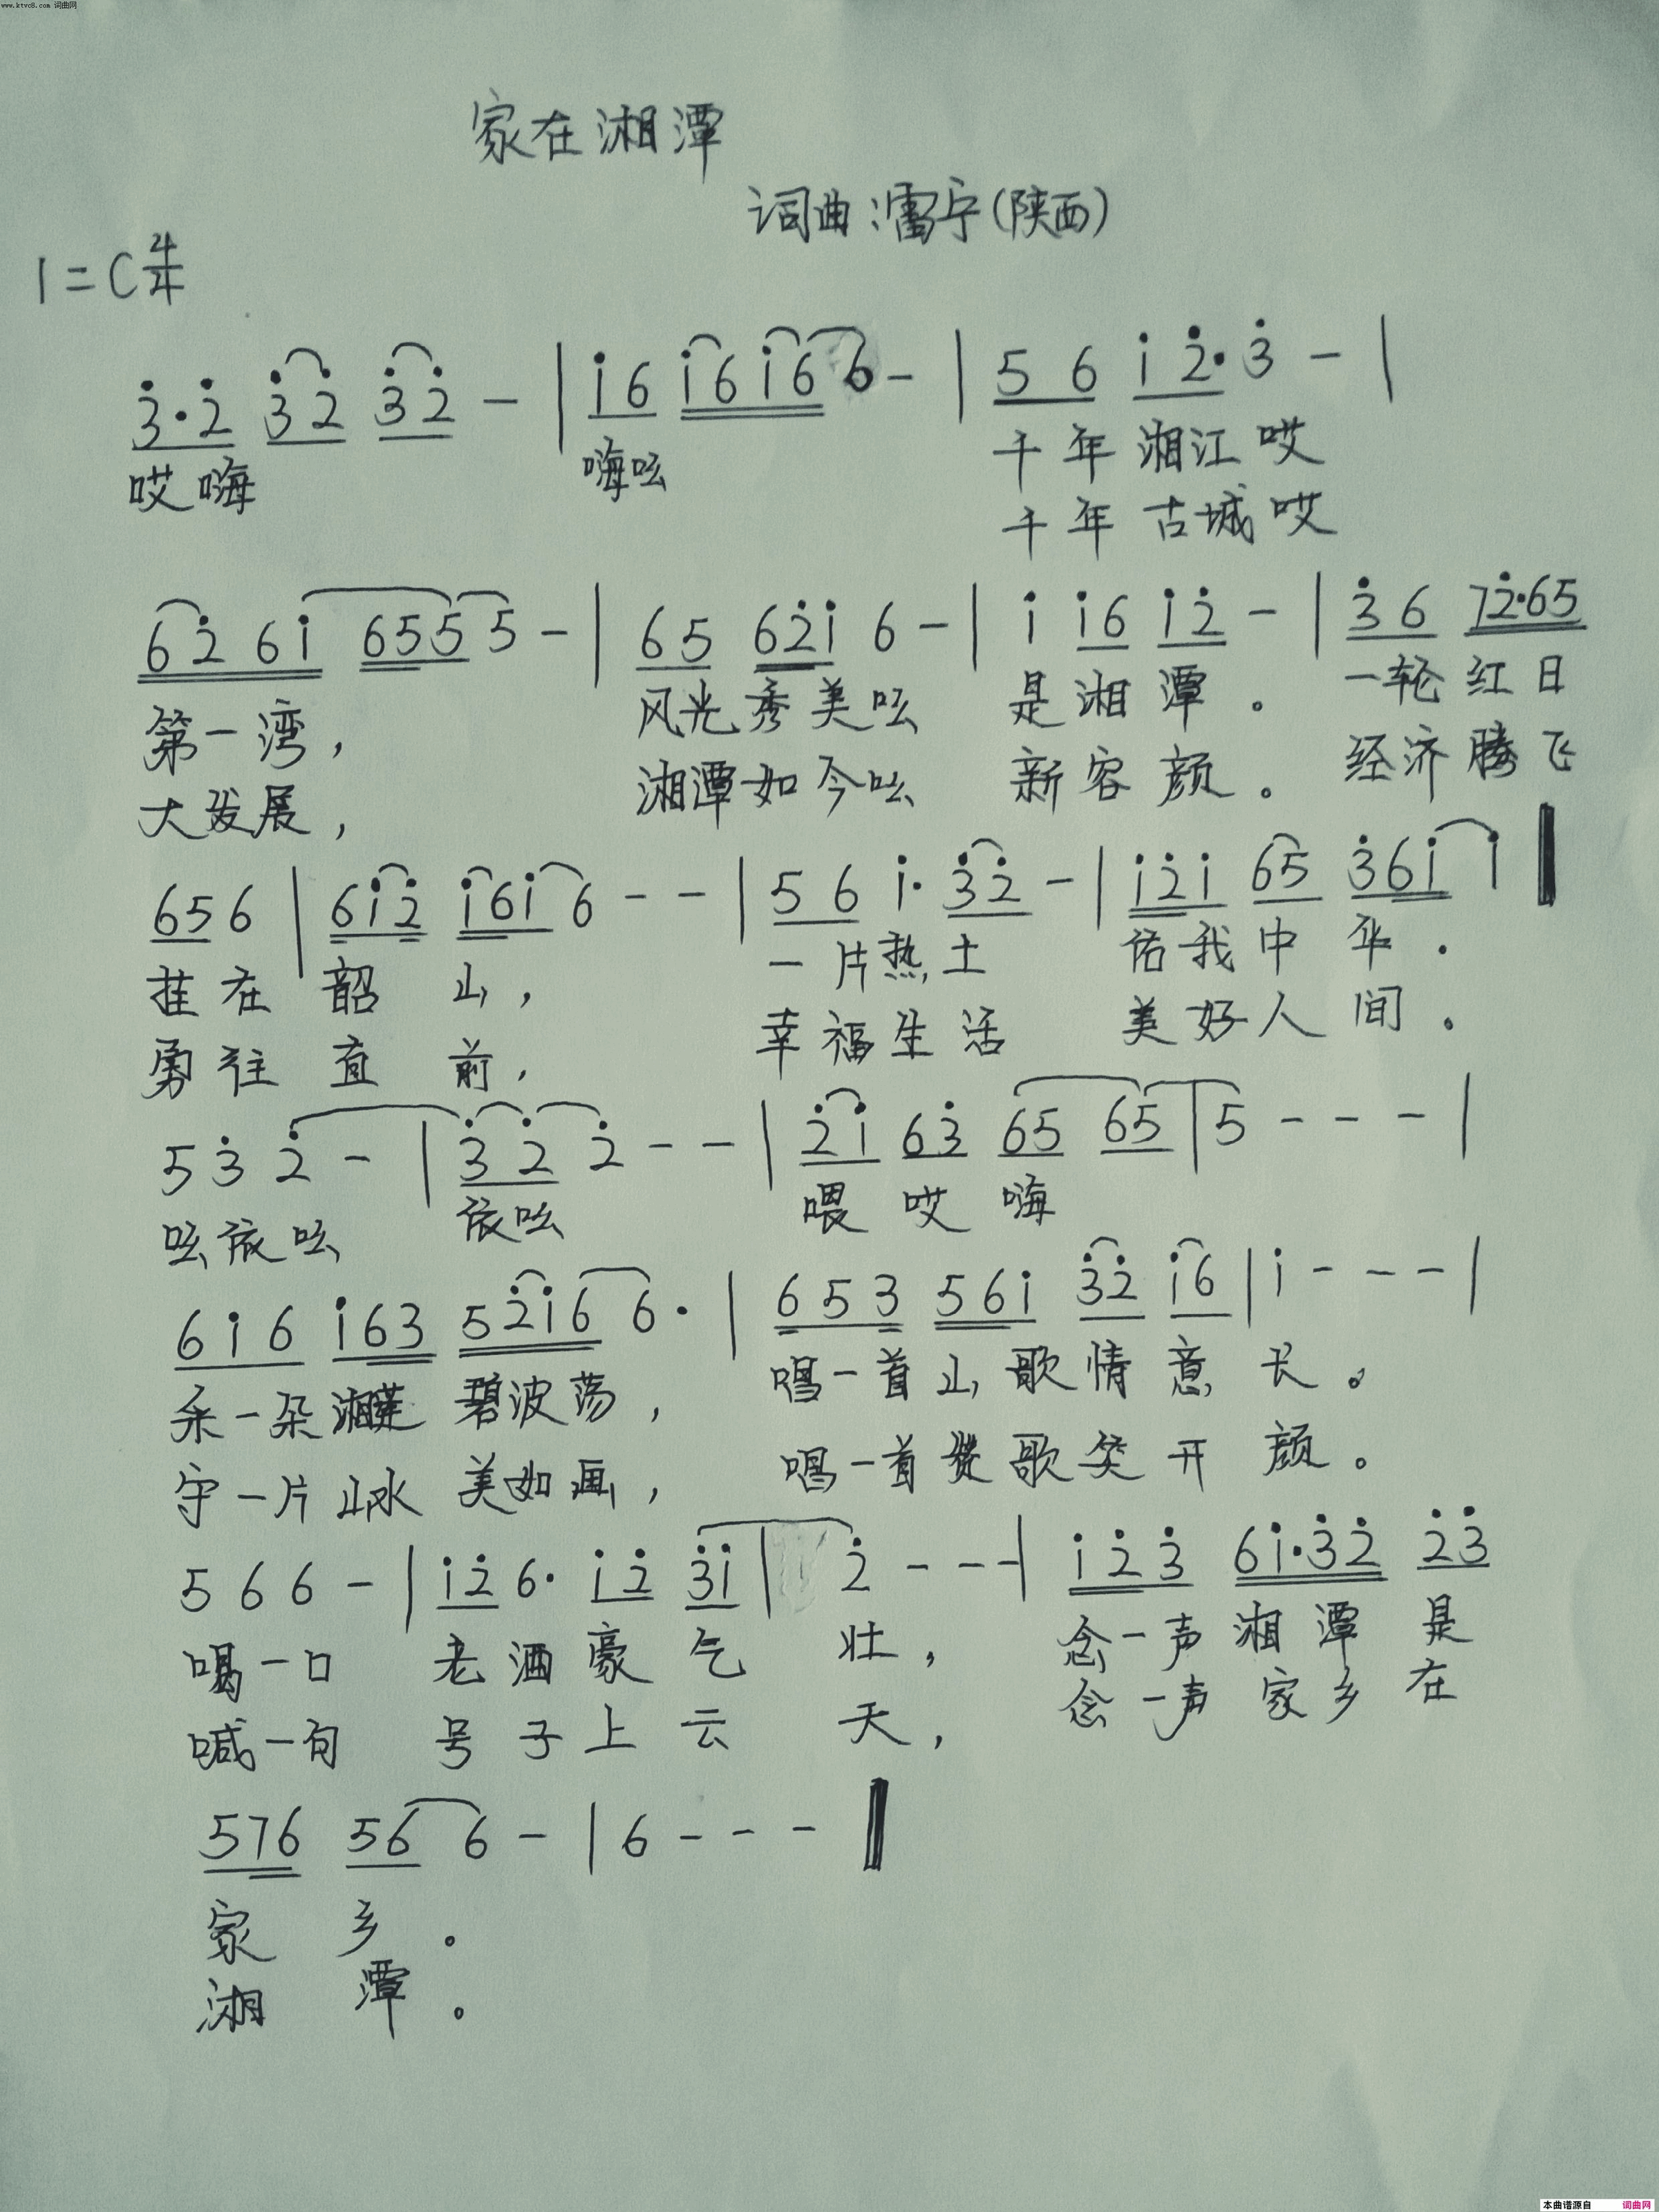 www.ktvc8.com 词曲网
家在湘潭
词曲:雷宁(陕西)
1=C 4/4
3̇·2̇ 3̇2̇ 3̇2̇ - | 1̇6 1̇61̇6 6 - | 5 6 1̇ 2̇· 3̇ - |
哎嗨 嗨吆 千年湘江哎
千年古城哎
62̇61̇ 6555 - | 65 62̇1̇ 6 - | 1̇ 1̇6 1̇2̇ - | 3̇6 72̇·65
第一湾, 风光秀美吆 是湘潭。 一轮红日
大发展, 湘潭如今吆 新容颜。 经济腾飞
656 | 61̇2̇ 1̇61̇ 6 - - | 5 6 1̇· 3̇2̇ - | 1̇2̇1̇ 65 3̇61̇ 1̇ ‖
挂在韶山, 一片热土 佑我中华.
勇往直前, 幸福生活 美好人间.
5 3̇ 2̇ - | 3̇ 2̇ 2̇ - - | 2̇1̇ 63̇ 65 65 | 5 - - - |
吆依吆 依吆 喂哎嗨
61̇6 1̇63 52̇1̇6 6· | 653 561̇ 3̇2̇ 1̇6 | 1̇ - - - |
采一朵湘莲 碧波荡, 唱一首山歌情意长。
守一片山水 美如画, 唱一首赞歌笑开颜。
5 6 6 - | 1̇2̇ 6· 1̇2̇ 3̇1̇ | 2̇ - - - | 1̇2̇3̇ 61̇·3̇2̇ 2̇3̇
喝一口 老酒豪气 壮, 念一声 湘潭 是
喊一句 号子上云 天, 念一声 家乡 在
576 56 6 - | 6 - - - ‖
家乡。
湘潭。
本曲谱源自 词曲网